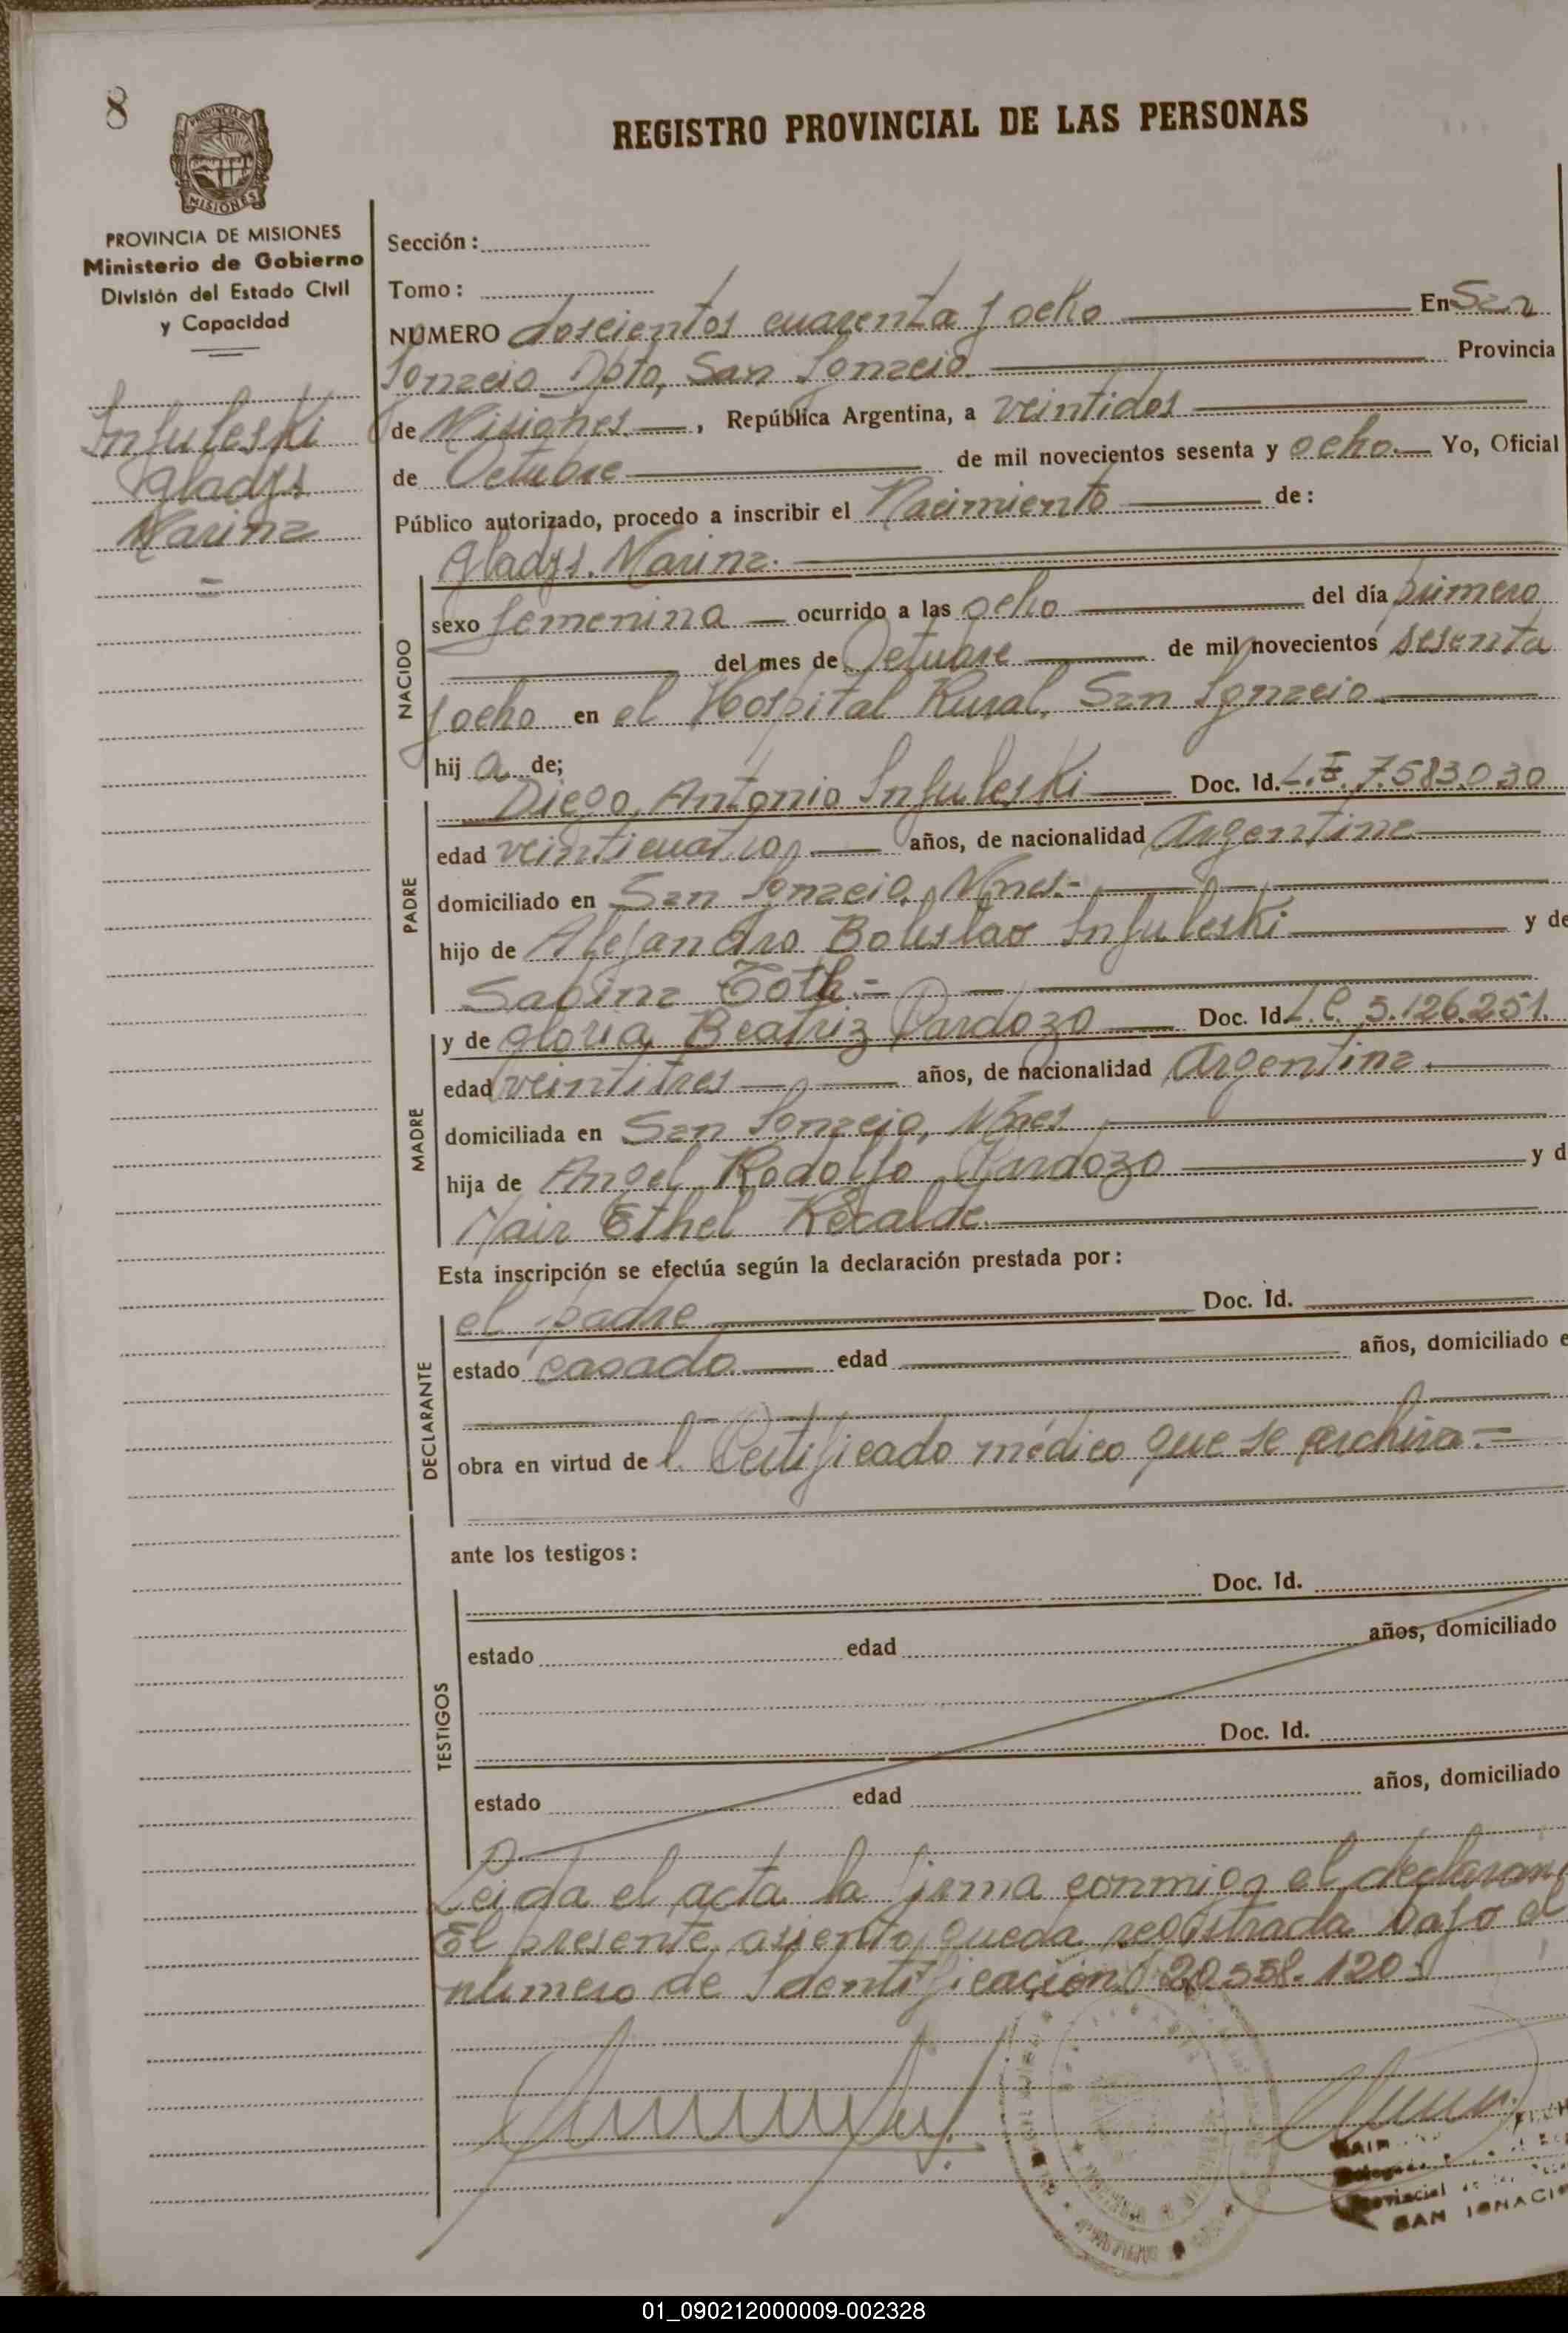 8
REGISTRO PROVINCIAL DE LAS PERSONAS
PROVINCIA DE
MISIONES
PROVINCIA DE MISIONES
Ministerio de Gobierno
División del Estado Civil
y Capacidad
Infuleski
Gladys
Marina
Sección:
Tomo:
NÚMERO doscientos cuarenta y ocho En San
Ignacio Dpto, San Ignacio. Provincia
de Misiones, República Argentina, a veintidos
de Octubre de mil novecientos sesenta y ocho. Yo, Oficial
Público autorizado, procedo a inscribir el Nacimiento de:
Gladys. Marina.
NACIDO
sexo femenina ocurrido a las ocho del día primero
del mes de Octubre de mil novecientos sesenta
y ocho en el Hospital Rural, San Ignacio.
hij a de;
PADRE
Diego, Antonio Infuleski Doc. Id. L.E. 7.583.030
edad veinticuatro años, de nacionalidad Argentina
domiciliado en San Ignacio, Mnes.-
hijo de Alejandro Boleslao Infuleski y de
Sabina Toth.=
MADRE
y de Gloria, Beatriz Cardozo Doc. Id. L.C. 5.126.251.
edad veintitres años, de nacionalidad Argentina.
domiciliada en San Ignacio, Mnes
hija de Angel Rodolfo Cardozo y d
Nair Ethel Recalde.
Esta inscripción se efectúa según la declaración prestada por:
DECLARANTE
el padre Doc. Id.
estado casado edad años, domiciliado e
obra en virtud de l Certificado médico que se archiva.=
ante los testigos:
TESTIGOS
Doc. Id.
estado edad años, domiciliado
Doc. Id.
estado edad años, domiciliado
Leida el acta la firma conmigo el declaran
El presente asiento, queda registrada bajo el
número de Identificación 20.558.120.
Provincial
SAN IGNACIO
01_090212000009-002328